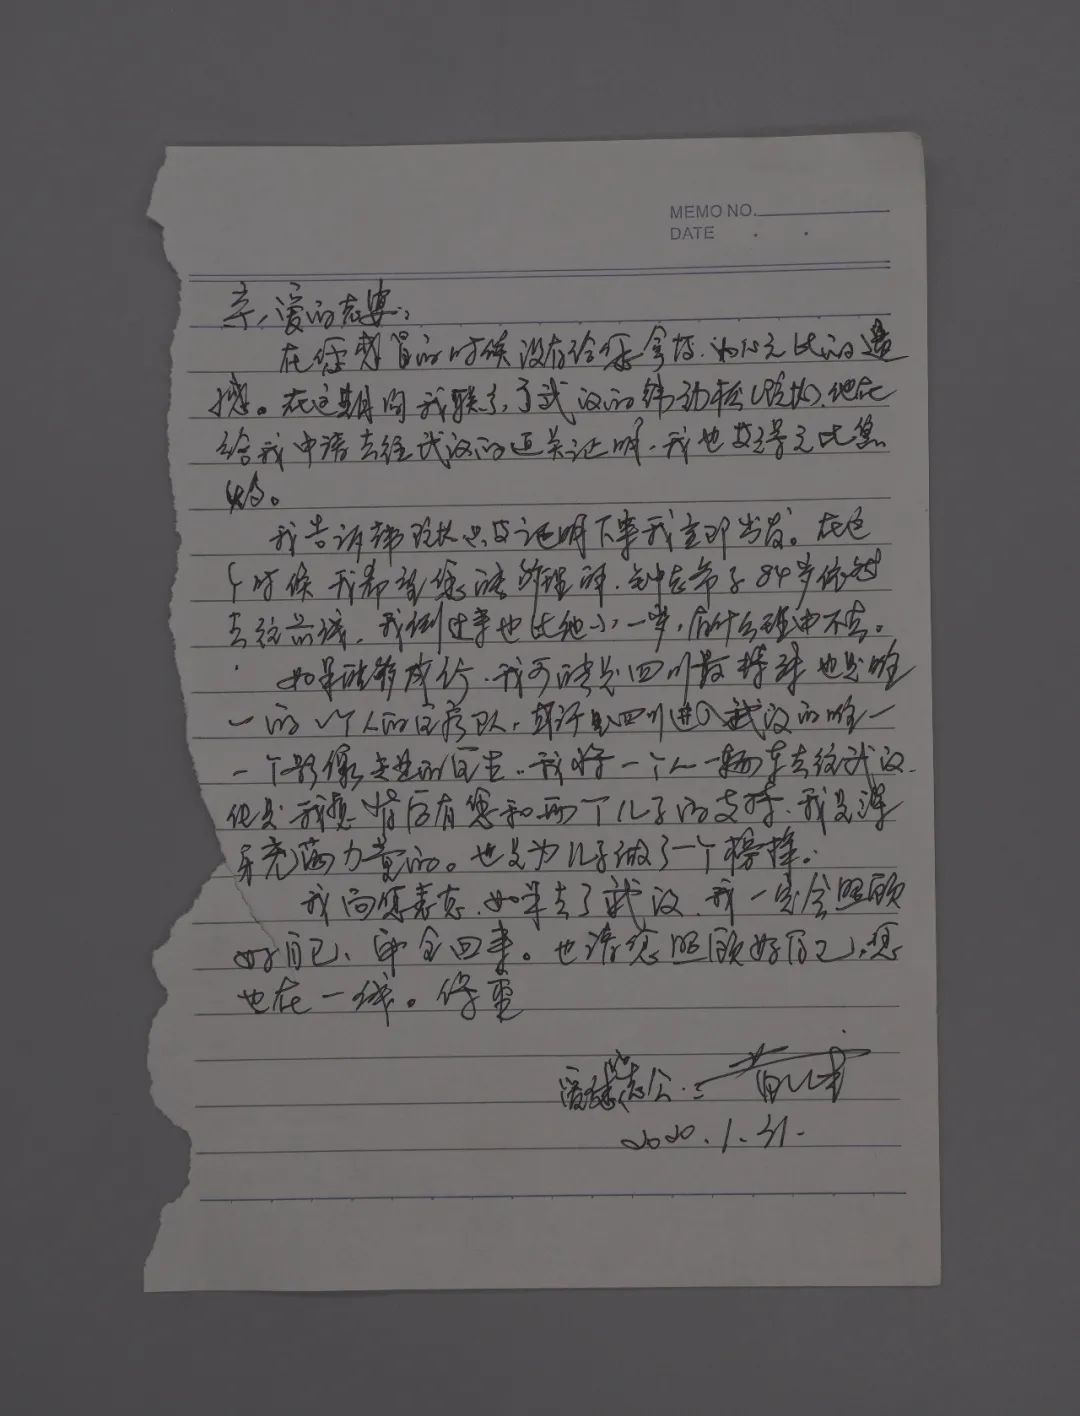 MEMO NO.
DATE . .
亲爱的老婆：
在您感冒的时候没有给您拿药，为此无比的遗
憾。在这期间我联系了武汉的韩劲松院长，他在
给我申请去往武汉的通关证明，我也变得无比焦
灼。
我告诉韩院长只要证明下来我立即出发。在这
个时候我希望您能够理解，钟老爷子84岁依然
去往前线，我倒过来也比他小一岁，有什么理由不去。
如果能够成行，我可能是四川最特殊也是唯
一的一个人的医疗队，或许是四川进入武汉的唯一
一个影像 的医生。我将一个人一辆车去往武汉，
但是我想背后有您和两个儿子的支持，我是浑
身充满力量的。也是为儿子做了一个榜样。
我向您表态，如果去了武汉，我一定会照顾
好自己，安全回来。也请您照顾好自己，您
也在一线。保重
爱您的老公：黄
2020.1.31.